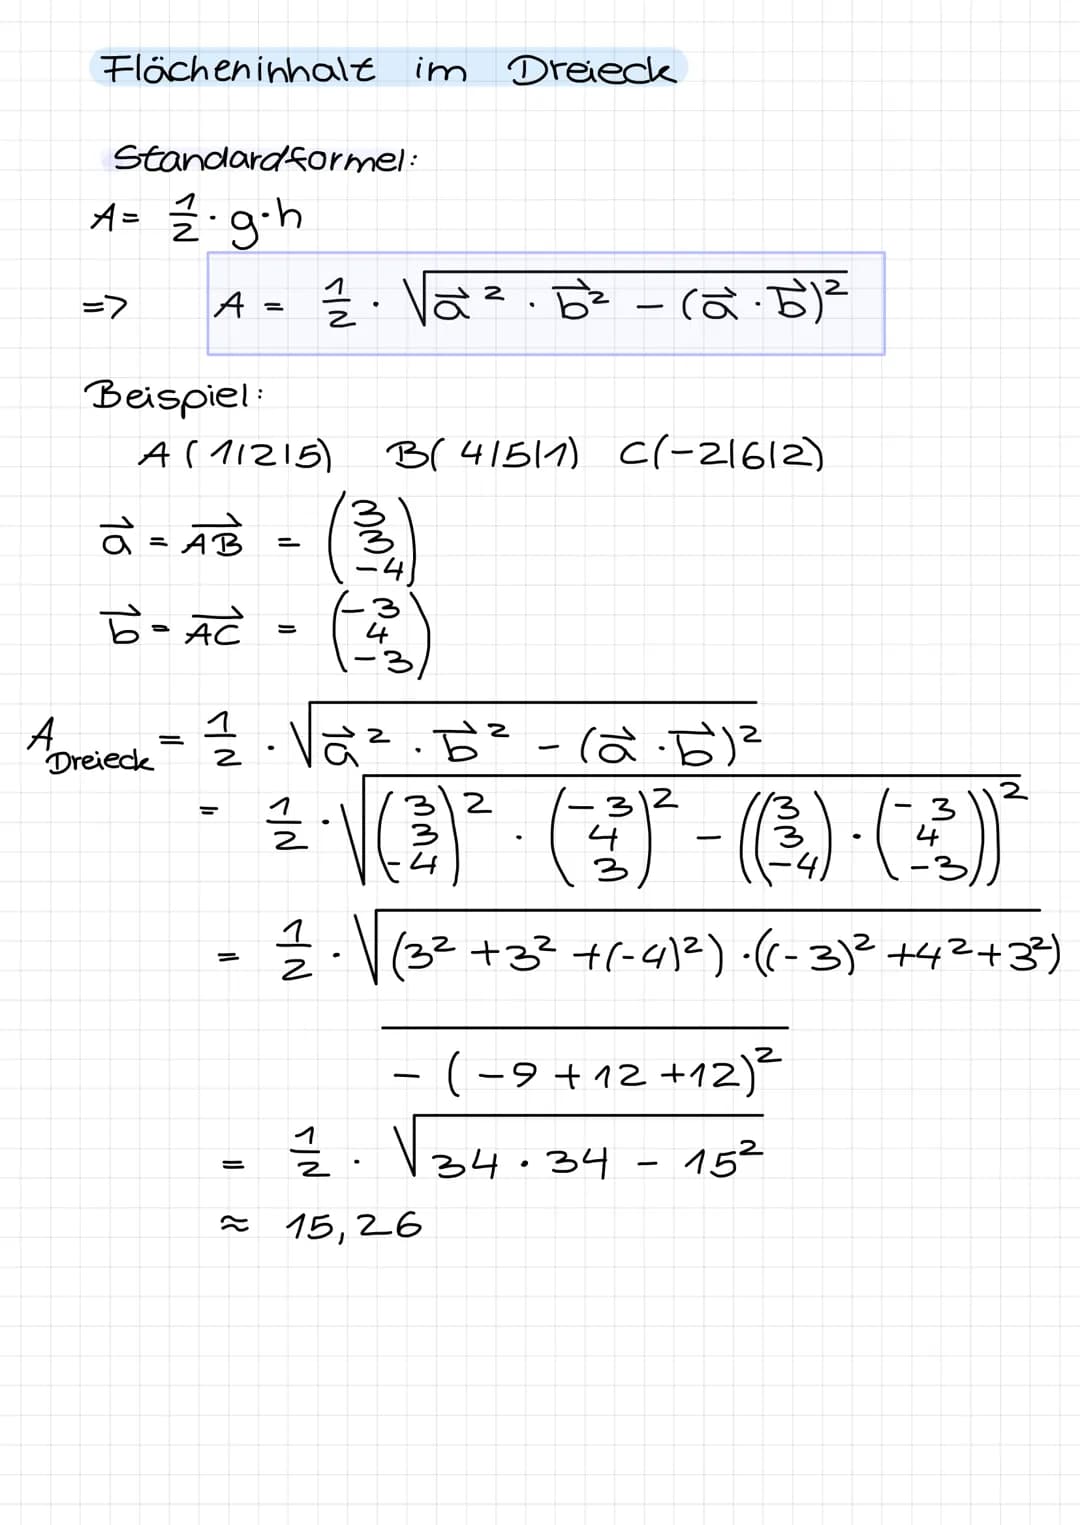 Flächeninhalt im Dreieck
Standardformel:
A = 1/2 · g · h
=> A = 1/2 · √(a⃗² · b⃗² - (a⃗ · b⃗)²)
Beispiel:
A(1|2|5) B(4|5|1) C(-2|6|2)
a⃗ = AB⃗ = (3 3 -4)
b⃗ = AC⃗ = (-3 4 -3)
A_Dreieck = 1/2 · √(a⃗² · b⃗² - (a⃗ · b⃗)²)
= 1/2 · √((3 3 -4)² · (-3 4 3)² - ((3 3 -4) · (-3 4 -3))²)
= 1/2 · √(3² + 3² + (-4)²) · ((-3)² + 4² + 3²)
- (-9 + 12 + 12)²
= 1/2 · √(34 · 34 - 15²)
≈ 15,26